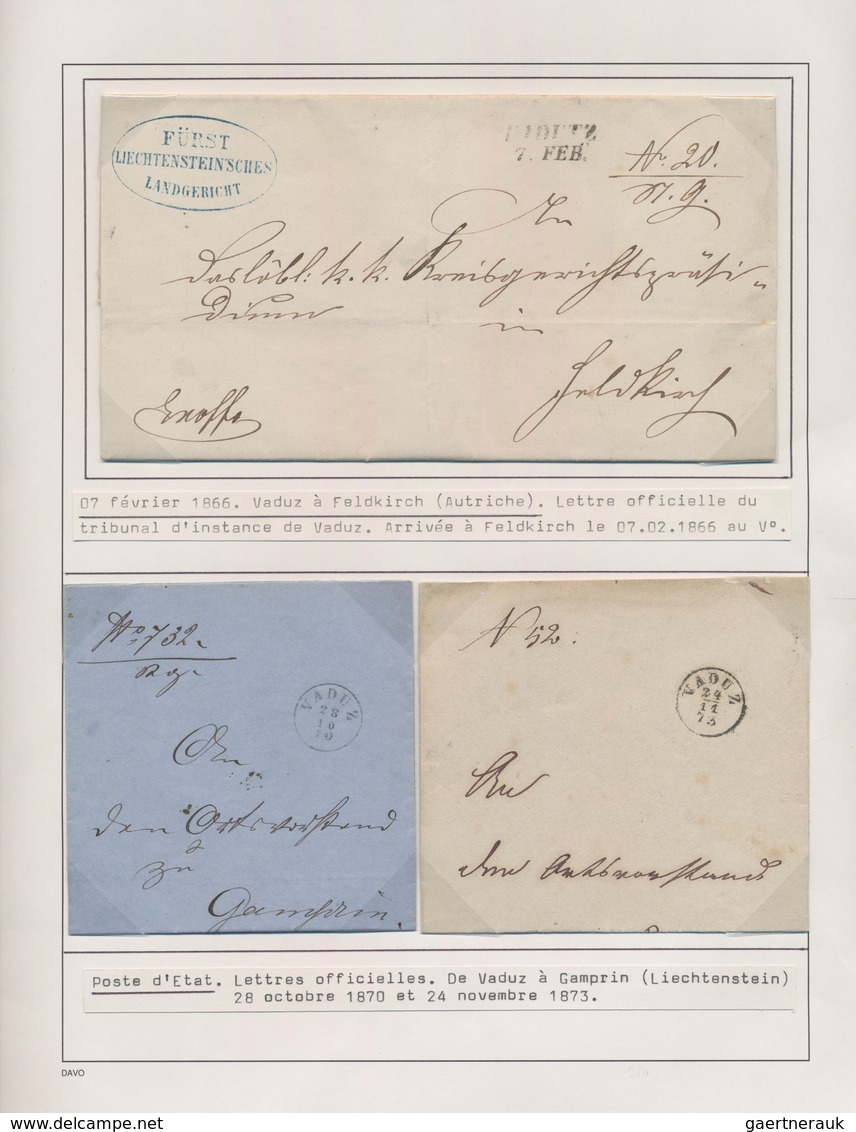 FÜRST
LIECHTENSTEIN'SCHES
LANDGERICHT
VADUTZ
7. FEB.
No. 20.
St. G.
An
das löbl: k. k. Kreisgerichtspräsi-
dium
in
Feldkirch
07 février 1866. Vaduz à Feldkirch (Autriche). Lettre officielle du
tribunal d'instance de Vaduz. Arrivée à Feldkirch le 07.02.1866 au V°.
No 732
VADUZ
28
10
70
An
den Ortsvorstand
zu
Gamprin.
N 52.
VADUZ
24
11
73
An
den Ortsvorstand
Poste d'Etat. Lettres officielles. De Vaduz à Gamprin (Liechtenstein)
28 octobre 1870 et 24 novembre 1873.
DAVO
delcampe.net
gaertnerauk